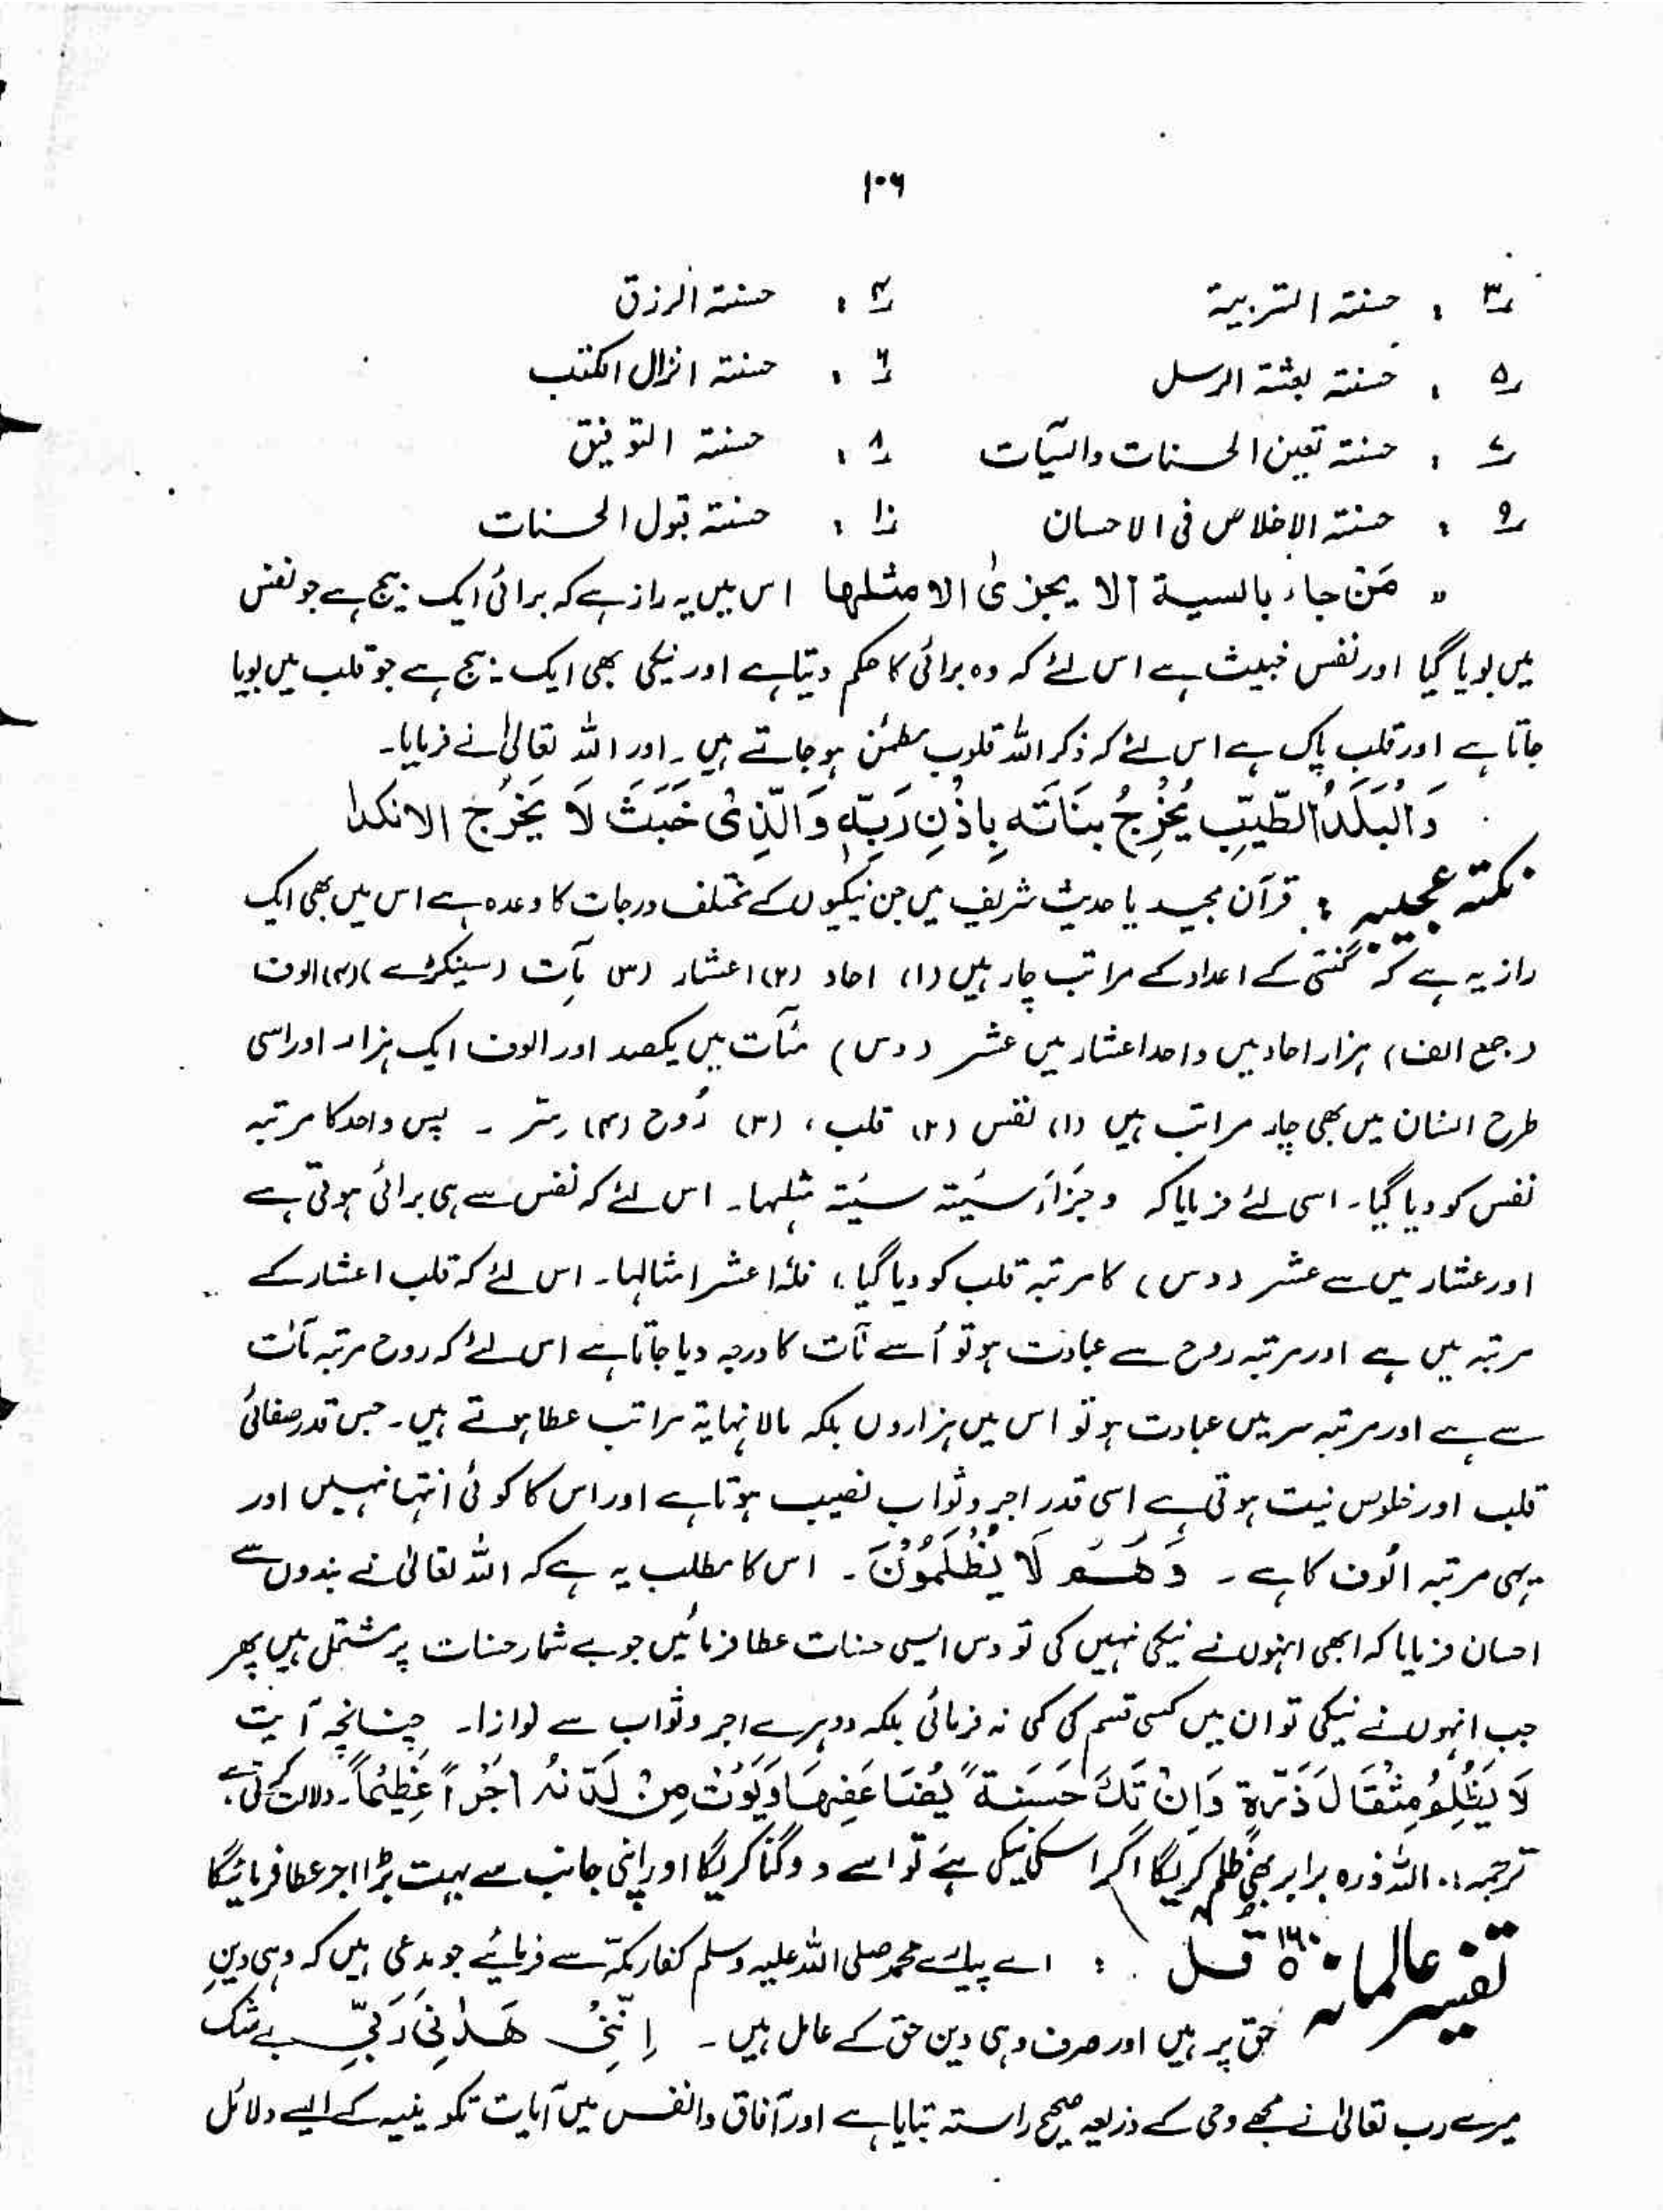 ۱۰۶
۳ : حسنتہ التربیۃ ۴ : حسنتہ الرزق
۵ : حسنتہ بعثۃ الرسل ۶ : حسنتہ انزال الکتب
۷ : حسنتہ تعین الحسنات والسیّآت ۸ : حسنتہ التوفیق
۹ : حسنتہ الاخلاص فی الاحسان ۱۰ : حسنتہ قبول الحسنات
" مَنْ جاء بالسیۃ الا یجزیٰ الا مثلھا اس میں یہ راز ہے کہ برائی ایک بیج ہے جو نفس
میں بویا گیا اور نفس خبیث ہے اس لئے کہ وہ برائی کا حکم دیتا ہے اور نیکی بھی ایک بیج ہے جو قلب میں بویا
جاتا ہے اور قلب پاک ہے اس لئے کہ ذکر اللہ قلوب مطمئن ہو جاتے ہیں ۔ اور اللہ تعالیٰ نے فرمایا ۔
وَالْبَلَدُ الطَّیِّبُ یُخْرِجُ بنَاتَہ بِاِذْنِ رَبِّہٖ وَالَّذِیْ خَبَثَ لَا یَخْرُجُ الا نکدا
نکتہ عجیبہ : قرآن مجید یا حدیث شریف میں جن نیکیوں کے مختلف درجات کا وعدہ ہے اس میں بھی ایک
راز یہ ہے کہ گنتی کے اعداد کے مراتب چار ہیں (۱) احاد (۲) اعشار (۳) مآت (سینکڑے) (۴) الوف
(جمع الف) ہزار احاد میں واحد اعشار میں عشر (دس) مئآت میں یکصد اور الوف ایک ہزار اور اسی
طرح انسان میں بھی چار مراتب ہیں (۱) نفس (۲) قلب ، (۳) رُوح (۴) سّر ۔ پس واحد کا مرتبہ
نفس کو دیا گیا ۔ اسی لئے فرمایا کہ وجزآء سیّئۃ سیّئۃ مثلہا ۔ اس لئے کہ نفس سے ہی برائی ہوتی ہے
اور عشار میں سے عشر (دس) کا مرتبہ قلب کو دیا گیا ، فلہٗ عشر امثالہا ۔ اس لئے کہ قلب اعشار کے
مرتبہ میں ہے اور مرتبہ روح سے عبادت ہو تو اُسے مآت کا درجہ دیا جاتا ہے اس لئے کہ روح مرتبہ مآت
سے ہے اور مرتبہ سر میں عبادت ہو تو اس میں ہزاروں بلکہ مالا نہایۃ مراتب عطا ہوتے ہیں ۔ جس قدر صفائی
قلب اور خلوص نیت ہوتی ہے اسی قدر اجر و ثواب نصیب ہوتا ہے اور اس کا کوئی انتہا نہیں اور
یہی مرتبہ الُوف کا ہے ۔ وَھُمْ لَا یُظْلَمُوْنَ ۔ اس کا مطلب یہ ہے کہ اللہ تعالیٰ نے بندوں سے
احسان فرمایا کہ ابھی انہوں نے نیکی نہیں کی تو دس ایسی حسنات عطا فرمائیں جو بے شمار حسنات پر مشتمل ہیں پھر
جب انہوں نے نیکی تو ان میں کسی قسم کی کمی نہ فرمائی بلکہ دوہرے اجر و ثواب سے نوازا ۔ چنانچہ آیت
لَا یَظْلِمُ مِثْقَالَ ذَرَّۃٍ وَاِنْ تَکُ حَسَنَۃً یُضَاعِفْہَا وَیُؤْتِ مِنْ لَّدُنْہُ اَجْراً عَظِیْماً ۔ دلالت کرتی ہے ؛
ترجمہ : ۔ اللہ ذرہ برابر بھی ظلم کریگا اگر اسکی نیکی ہے تو اسے دوگنا کریگا اور اپنی جانب سے بہت بڑا اجر عطا فرمائیگا
تفسیر عالمانہ قُل : اے پیارے محمد صلی اللہ علیہ وسلم کفار مکہّ سے فرمائیے جو مدعی ہیں کہ وہی دینِ
حق پر ہیں اور صرف وہی دین حق کے عامل ہیں ۔ اِنَّنِیْ ھَدٰنِیْ رَبِّیْ بے شک
میرے رب تعالیٰ نے مجھے وحی کے ذریعہ صحیح راستہ بتایا ہے اور آفاق و انفس میں آیات تکوینیہ کے ایسے دلائل